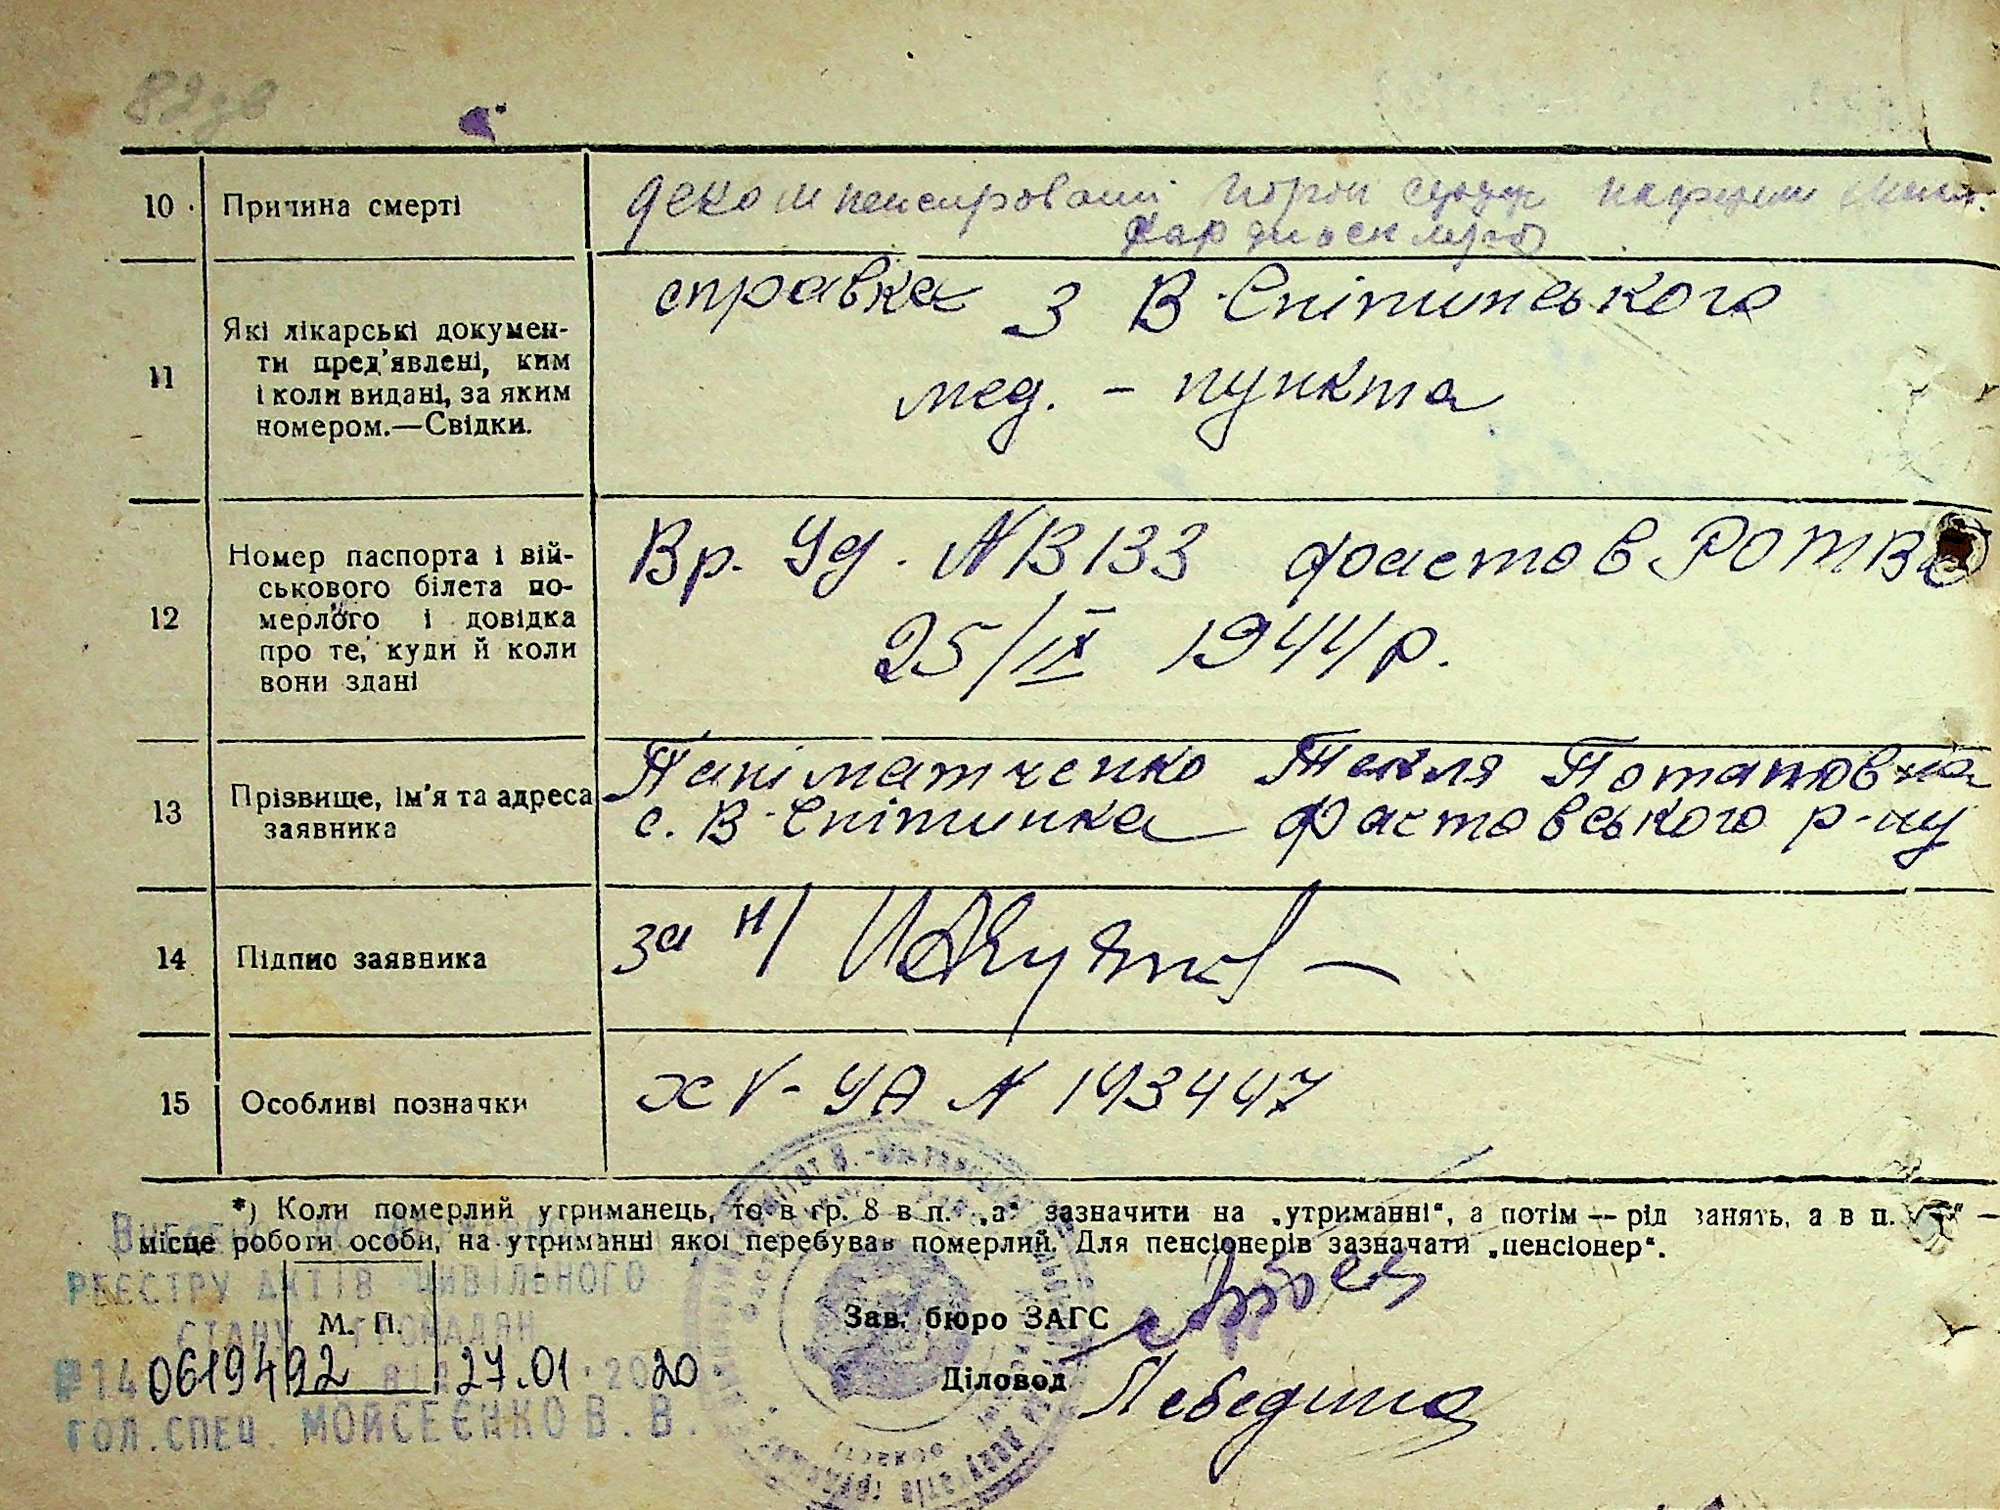 82 зв
10 Причина смерті
декомпенсированй порок сердц
кардиосклероз
11 Які лікарські докумен-
ти пред'явлені, ким
і коли видані, за яким
номером.—Свідки.
справка з В-Снітинського
мед. - пункта
12 Номер паспорта і вій-
ськового білета по-
мерлого і довідка
про те, куди й коли
вони здані
Вр. Уд. №В133 фастов
25/IX 1944 р.
13 Прізвище, ім'я та адреса
заявника
Текля Потаповна
с. В-Снітинка Фастовського р-ну
14 Підпис заявника
за н/
15 Особливі позначки
XV-УА N 193447
*) Коли померлий утриманець, то в гр. 8 в п. „а" зазначити на „утриманні", а потім — рід занять, а в п.
місце роботи особи, на утриманні якої перебував померлий. Для пенсіонерів зазначати „пенсіонер".
РЕЄСТРУ АКТІВ ЦИВІЛЬНОГО
СТАНУ ГРОМАДЯН
М. П.
Зав. бюро ЗАГС
№ 140619492 від 27.01.2020
Діловод Лебедина
ГОЛ.СПЕЦ. МОЙСЕЄНКО В.В.